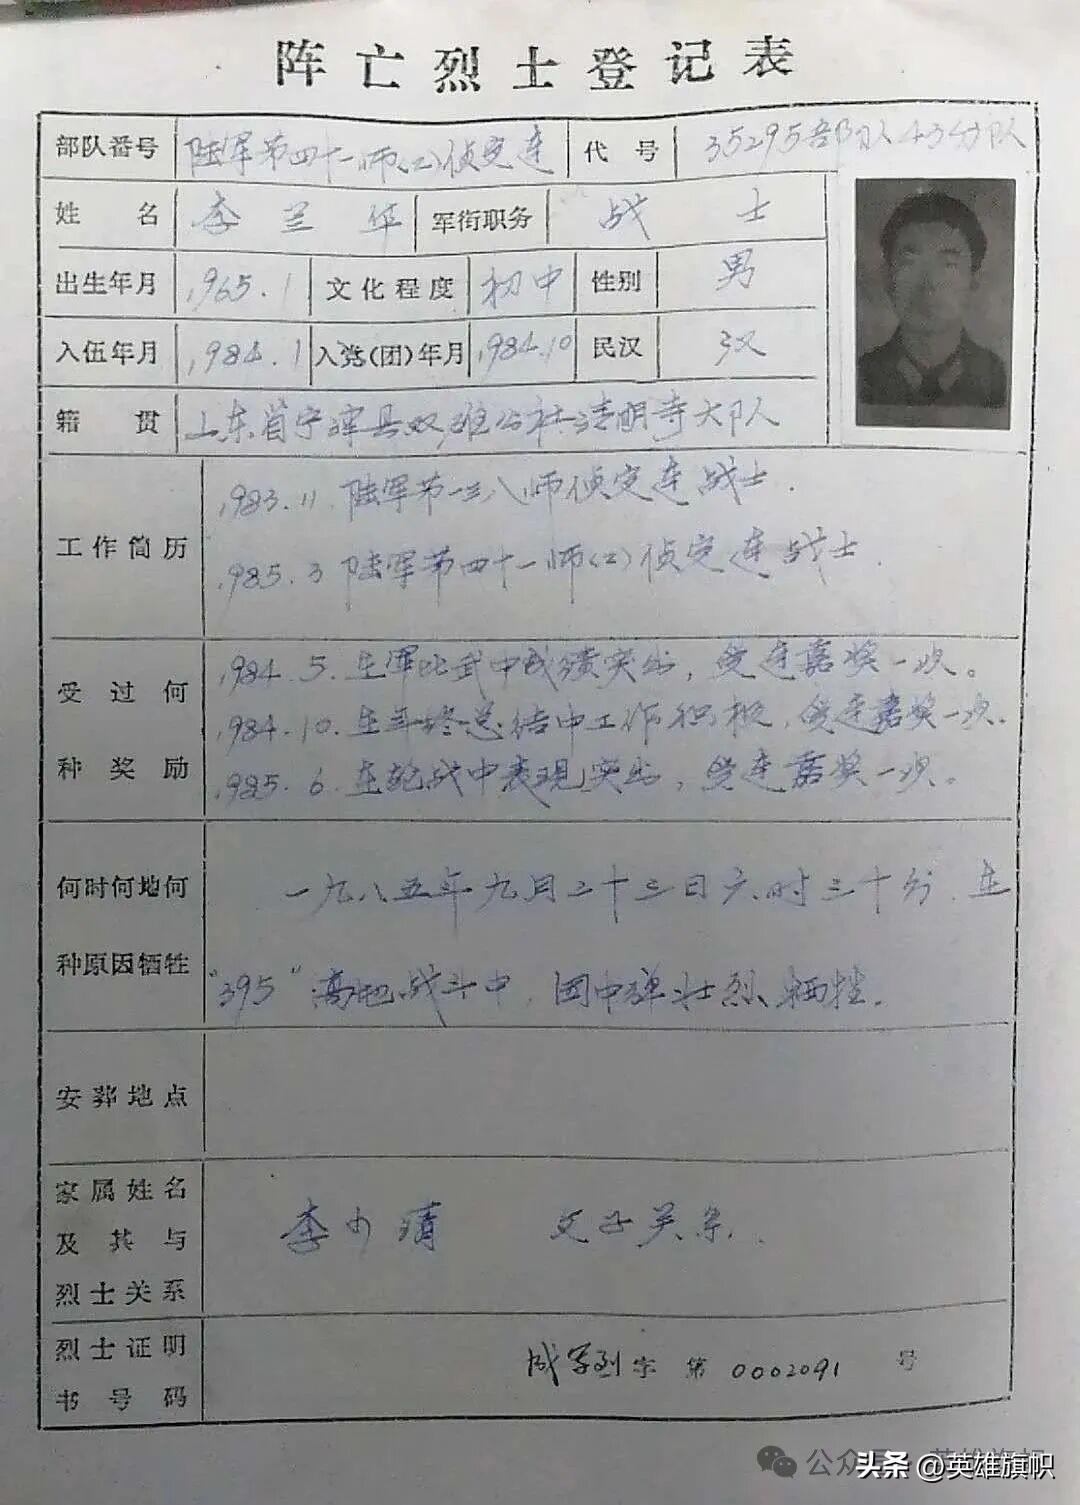 阵亡烈士登记表
部队番号 陆军第四十一师(2)侦察连 代号 35295部队43分队
姓名 李兰华 军衔职务 战士
出生年月 1965.1 文化程度 初中 性别 男
入伍年月 1984.1 入党(团)年月 1984.10 民汉 汉
籍贯 山东省宁津县双碓公社清明寺大队
工作简历 1983.11.陆军第一三八师侦察连战士.
1985.3 陆军第四十一师(2)侦察连战士.
受过何种奖励 1984.5.在军比武中成绩突出,受连嘉奖一次。
1984.10.在年终总结中工作积极,受连嘉奖一次.
1985.6.在轮战中表现突出,受连嘉奖一次。
何时何地何种原因牺牲 一九八五年九月二十三日六时三十分.在
"395"高地战斗中,因中弹壮烈牺牲.
安葬地点
家属姓名及其与烈士关系 李少清 父子关系.
烈士证明书号码 成军烈字第0002091号
公众号 英雄旗帜
头条 @英雄旗帜